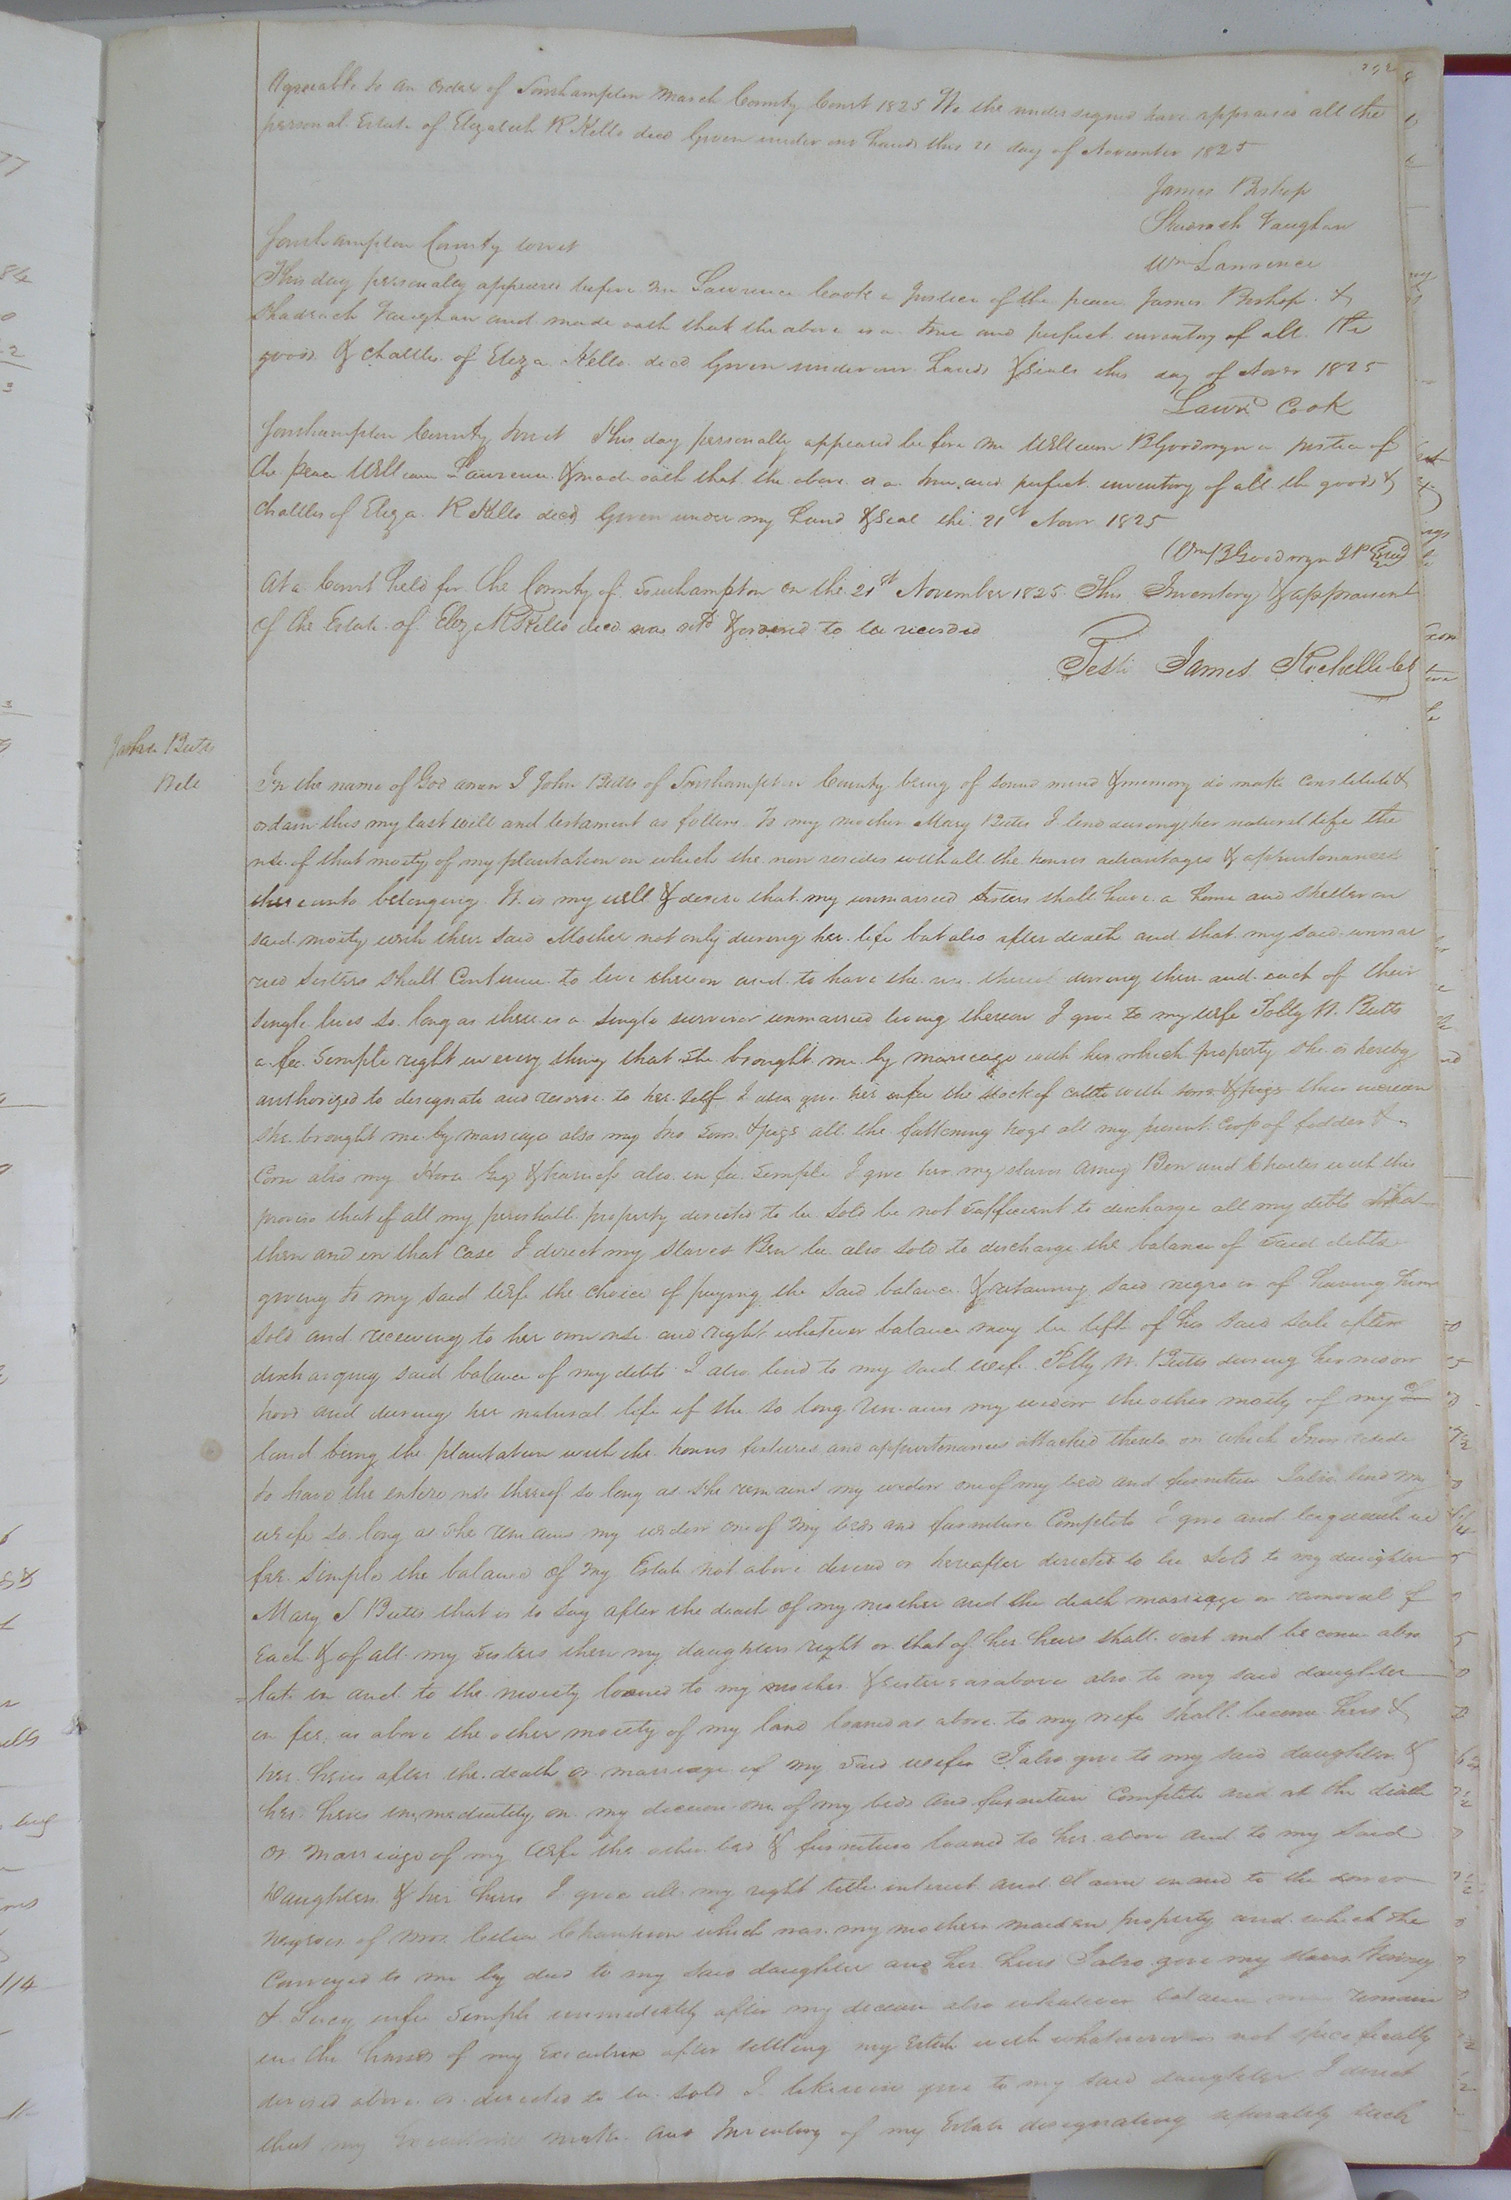 Agreeable to an order of Southampton March County Court 1825 We the undersigned have appraised all the
personal Estate of Elizabeth R Kello decd Given under our hands this 21 day of November 1825
James Bishop
Shadrach Vaughan
Wm Lawrence
Southampton County towit
This day personally appeared before me Lawrence Cook a Justice of the peace James Bishop &
Shadrach Vaughan and made oath that the above is a true and perfect inventory of all the
goods & chattles of Eliza Kello decd Given under our hands & seals this day of Novr 1825
Lawrd Cook
Southampton County towit This day personally appeared before me William B Goodwyn a Justice of
the peace William Lawrence & made oath that the above is a true and perfect inventory of all the goods &
chattles of Eliza R Kello decd Given under my hand & seal this 21st Novr 1825
Wm B Goodwyn JP Seal
At a Court held for the County of Southampton on the 21st November 1825 This Inventory & appraisment
of the Estate of Eliz R Kello decd was retd & ordered to be recorded
Teste James Rochelle Clk
John Butts
Will
In the name of God amen I John Butts of Southampton County being of sound mind & memory do make constitute &
ordain this my last will and testament as follows To my mother Mary Butts I lend during her natural life the
use of that moity of my plantation on which she now resides with all the houses advantages & appurtenances
thereunto belonging It is my will & desire that my unmarried sisters shall have a home and shelter on
said moity with their said Mother not only during her life but also after death and that my said unmar
ried sisters shall continue to live thereon and to have the use thereof during their and each of their
single lives so long as there is a single survivor unmarried living thereon I give to my wife Polly N. Butts
a fee simple right in every thing that she brought me by marriage with her which property she is hereby
authorized to designate and reserve to her self I also give her in fee the stock of cattle with sows & pigs their increase
she brought me by marriage also my two sows & pigs all the fattening hogs all my present crop of fodder &
Corn also my Horse Gig & harness also in fee simple I give her my slaves Amey Ben and Charles with this
proviso that if all my perishable property directed to be sold be not sufficient to discharge all my debts that
then and in that case I direct my slaves Ben be also sold to discharge the balance of said debts
giving to my said wife the choice of paying the said balance & retaining said negro or of having him
sold and receiving to her own use and right whatever balance may be left of his said sale after
discharging said balance of my debts I also lend to my said wife Polly N. Butts during her widow
hood and during her natural life if she so long remains my widow the other moity of my
land being the plantation with the houses fixtures and appurtenances attached thereto on which I now reside
to have the entire use thereof so long as she remains my widow one of my beds and furniture I also lend my
wife so long as she remains my widow one of my beds and furniture complete I give and bequeath in
fee simple the balance of my Estate not above devised or hereafter directed to be sold to my daughter
Mary S Butts that is to say after the death of my mother and the death marriage or removal of
Each & of all my sisters then my daughters right or that of her heirs shall vest and become abso
lute in and to the moiety loaned to my mother & sisters as above also to my said daughter
in fee as above the other moiety of my land loaned as above to my wife shall become hers &
her heirs after the death or marriage of my said wife I also give to my said daughter &
her heirs immediately on my decease one of my beds and furniture complete and at the death
or marriage of my wife the other bed & furniture loaned to her above and to my said
Daughter & her heirs I give all my right title interest and claim in and to the
negroes of Mrs. Celia which was my mothers maiden property and which she
conveyed to me by deed to my said daughter and her heirs I also give my slaves
& Lucy in fee simple immediately after my decease also whatever balance may remain
in the hands of my Executrix after settling my Estate with whatsoever is not specifically
devised above or directed to be sold I likewise give to my said daughter I direct
that my make and Inventory of my Estate designating separately such